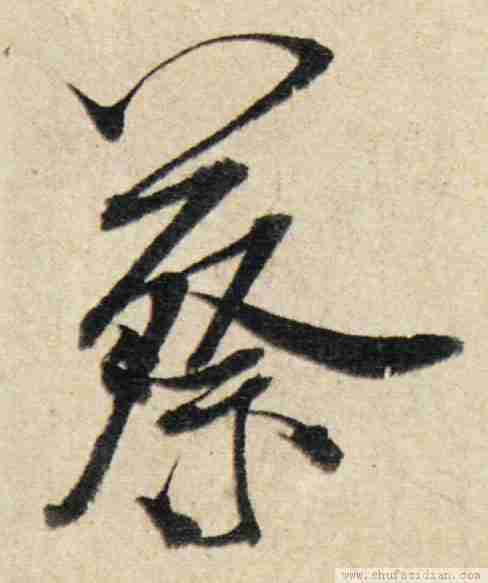 蔡
www.shufazidian.com